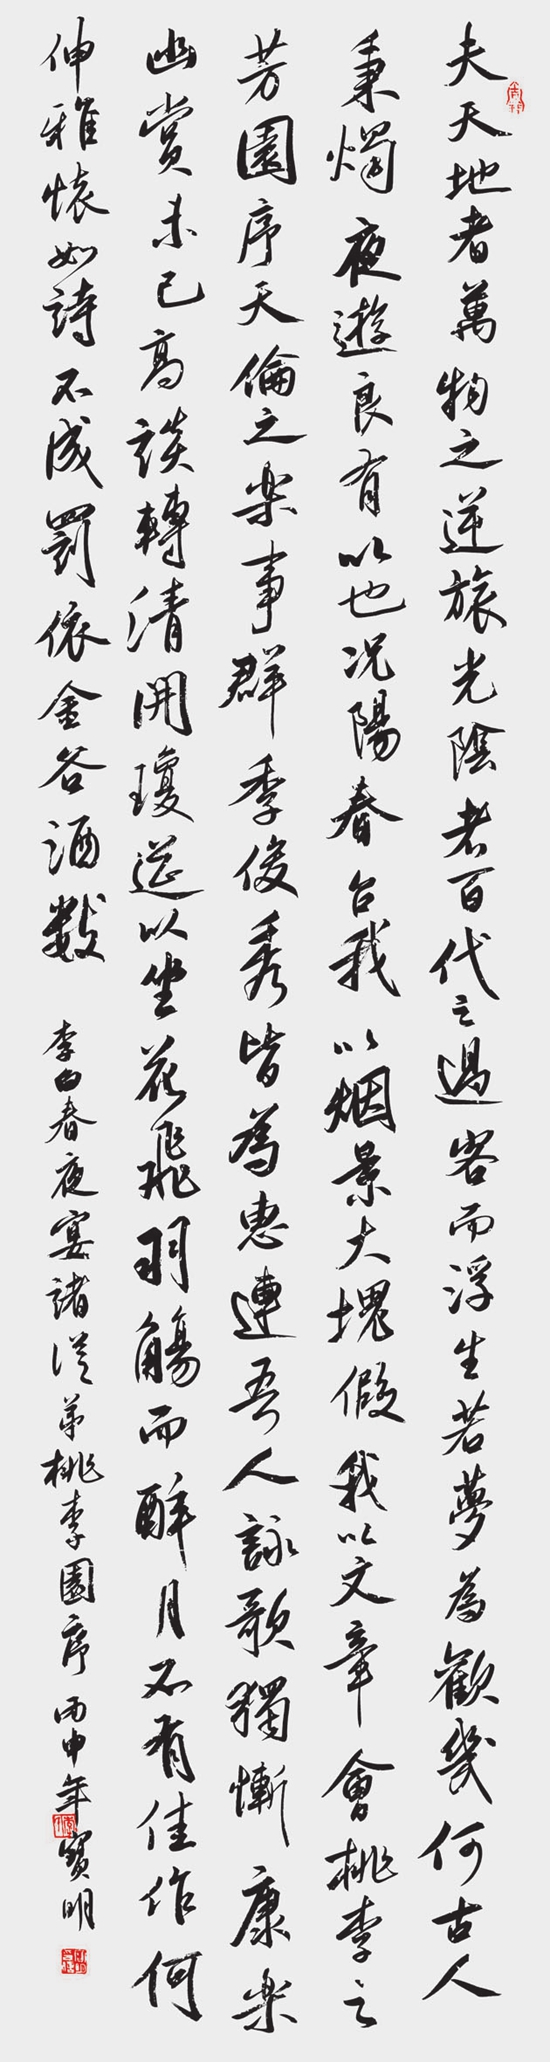 夫天地者萬物之逆旅光陰者百代之過客而浮生若夢為歡幾何古人
秉燭夜遊良有以也况陽春召我以烟景大塊假我以文章會桃李之
芳園序天倫之樂事群季俊秀皆為惠連吾人詠歌獨慚康樂
幽賞未已高談轉清開瓊筵以坐花飛羽觴而醉月不有佳作何
伸雅懷如詩不成罰依金谷酒數
李白春夜宴諸從弟桃李園序 丙申年寶明